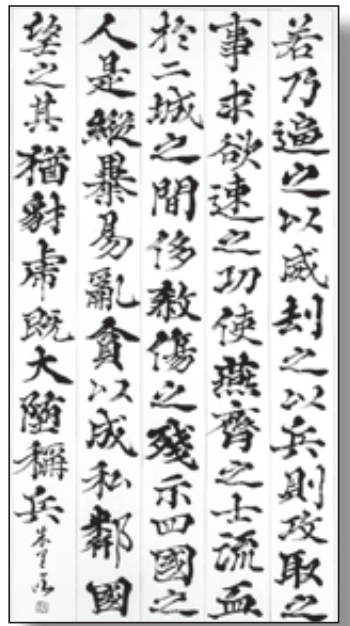 若乃逼之以威刧之以兵則攻取之
事求欲速之功使燕齊之士流血
於二城之間侈敎傷之殘示四國之
人是縱暴易亂貪以成私鄰國
望之其猶豺虎既大墮稱兵